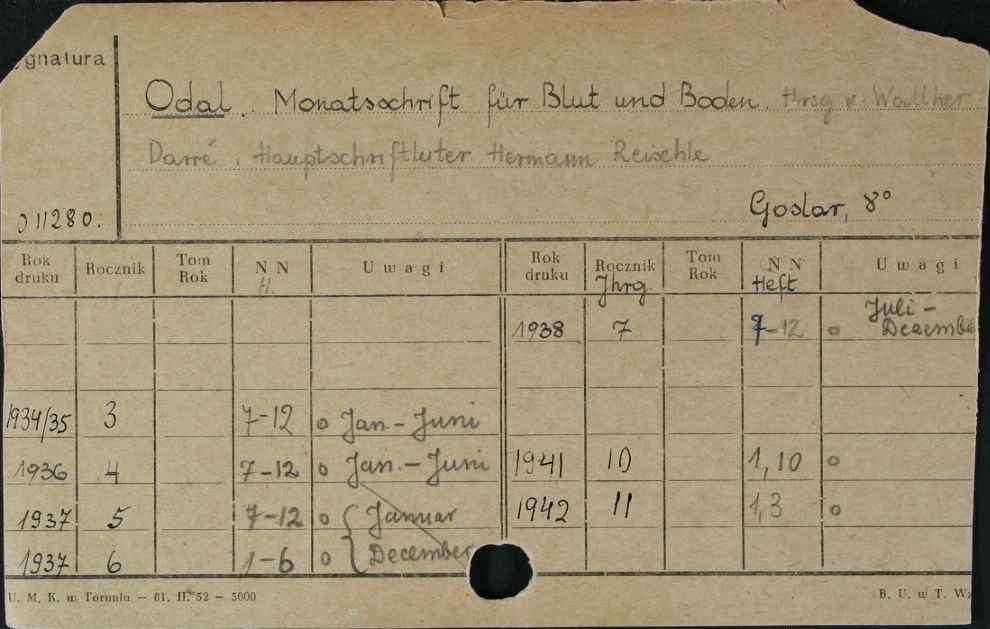 gnatura
Odal. Monatsschrift für Blut und Boden. Hrsg v. Walther
Darré. Hauptschriftleiter Hermann Reischle
Goslar, 8°
011280.
Rok druku Rocznik Tom Rok N N Uwagi Rok druku Rocznik Tom Rok N N Uwagi
H. Jhrg. Heft
1938 7 7-12 o Juli - Dezembe
1934/35 3 7-12 o Jan. - Juni
1936 4 7-12 o Jan. - Juni 1941 10 1, 10 o
1937 5 7-12 o Januar 1942 11 1, 3 o
1937 6 1-6 o December
U. M. K. w Toruniu — 81. II. 52 — 5000 B. U. w T. Wz